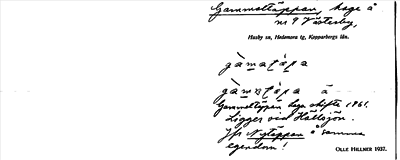 Gammeltäppan, hage å
nr 9 Västerby,
Husby sn, Hedemora tg, Kopparbergs län.
gàmatápa
Gammeltäppan hage skifte 1861.
Ligger vid Hällsjön.
Jfr Nytäppan å samma
egendom!
OLLE HILLNER 1937.